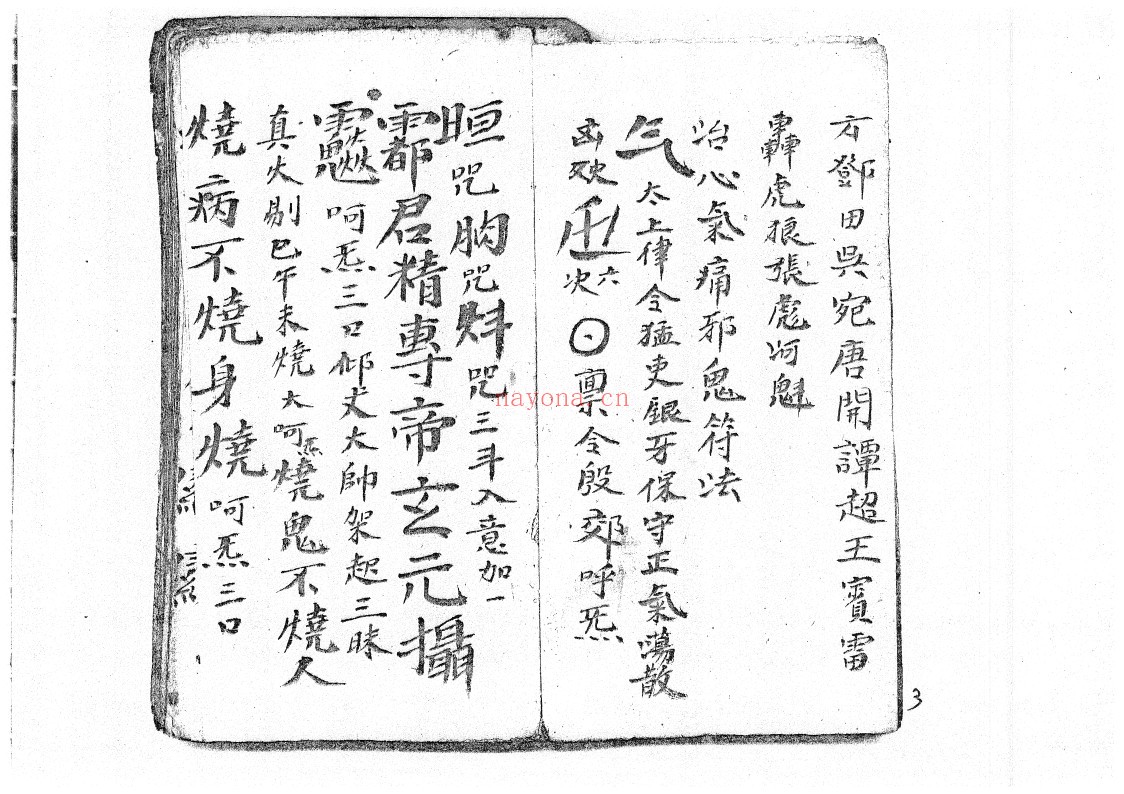 方鄧田吳宛唐開譚超王賓雷
轟虎狼張彪河魁
治心氣痛邪鬼符法
气 太上律令猛吏銀牙保守正氣蕩散
凶 六次 稟令殷郊呼炁
晅咒胸咒咒三斗入意加一
君精專帝玄元攝
呵炁三口仰丈大帥架起三昧
真火剔巳午未燒大呵炁燒鬼不燒人
燒病不燒身燒呵炁三口
nayona.cn
3